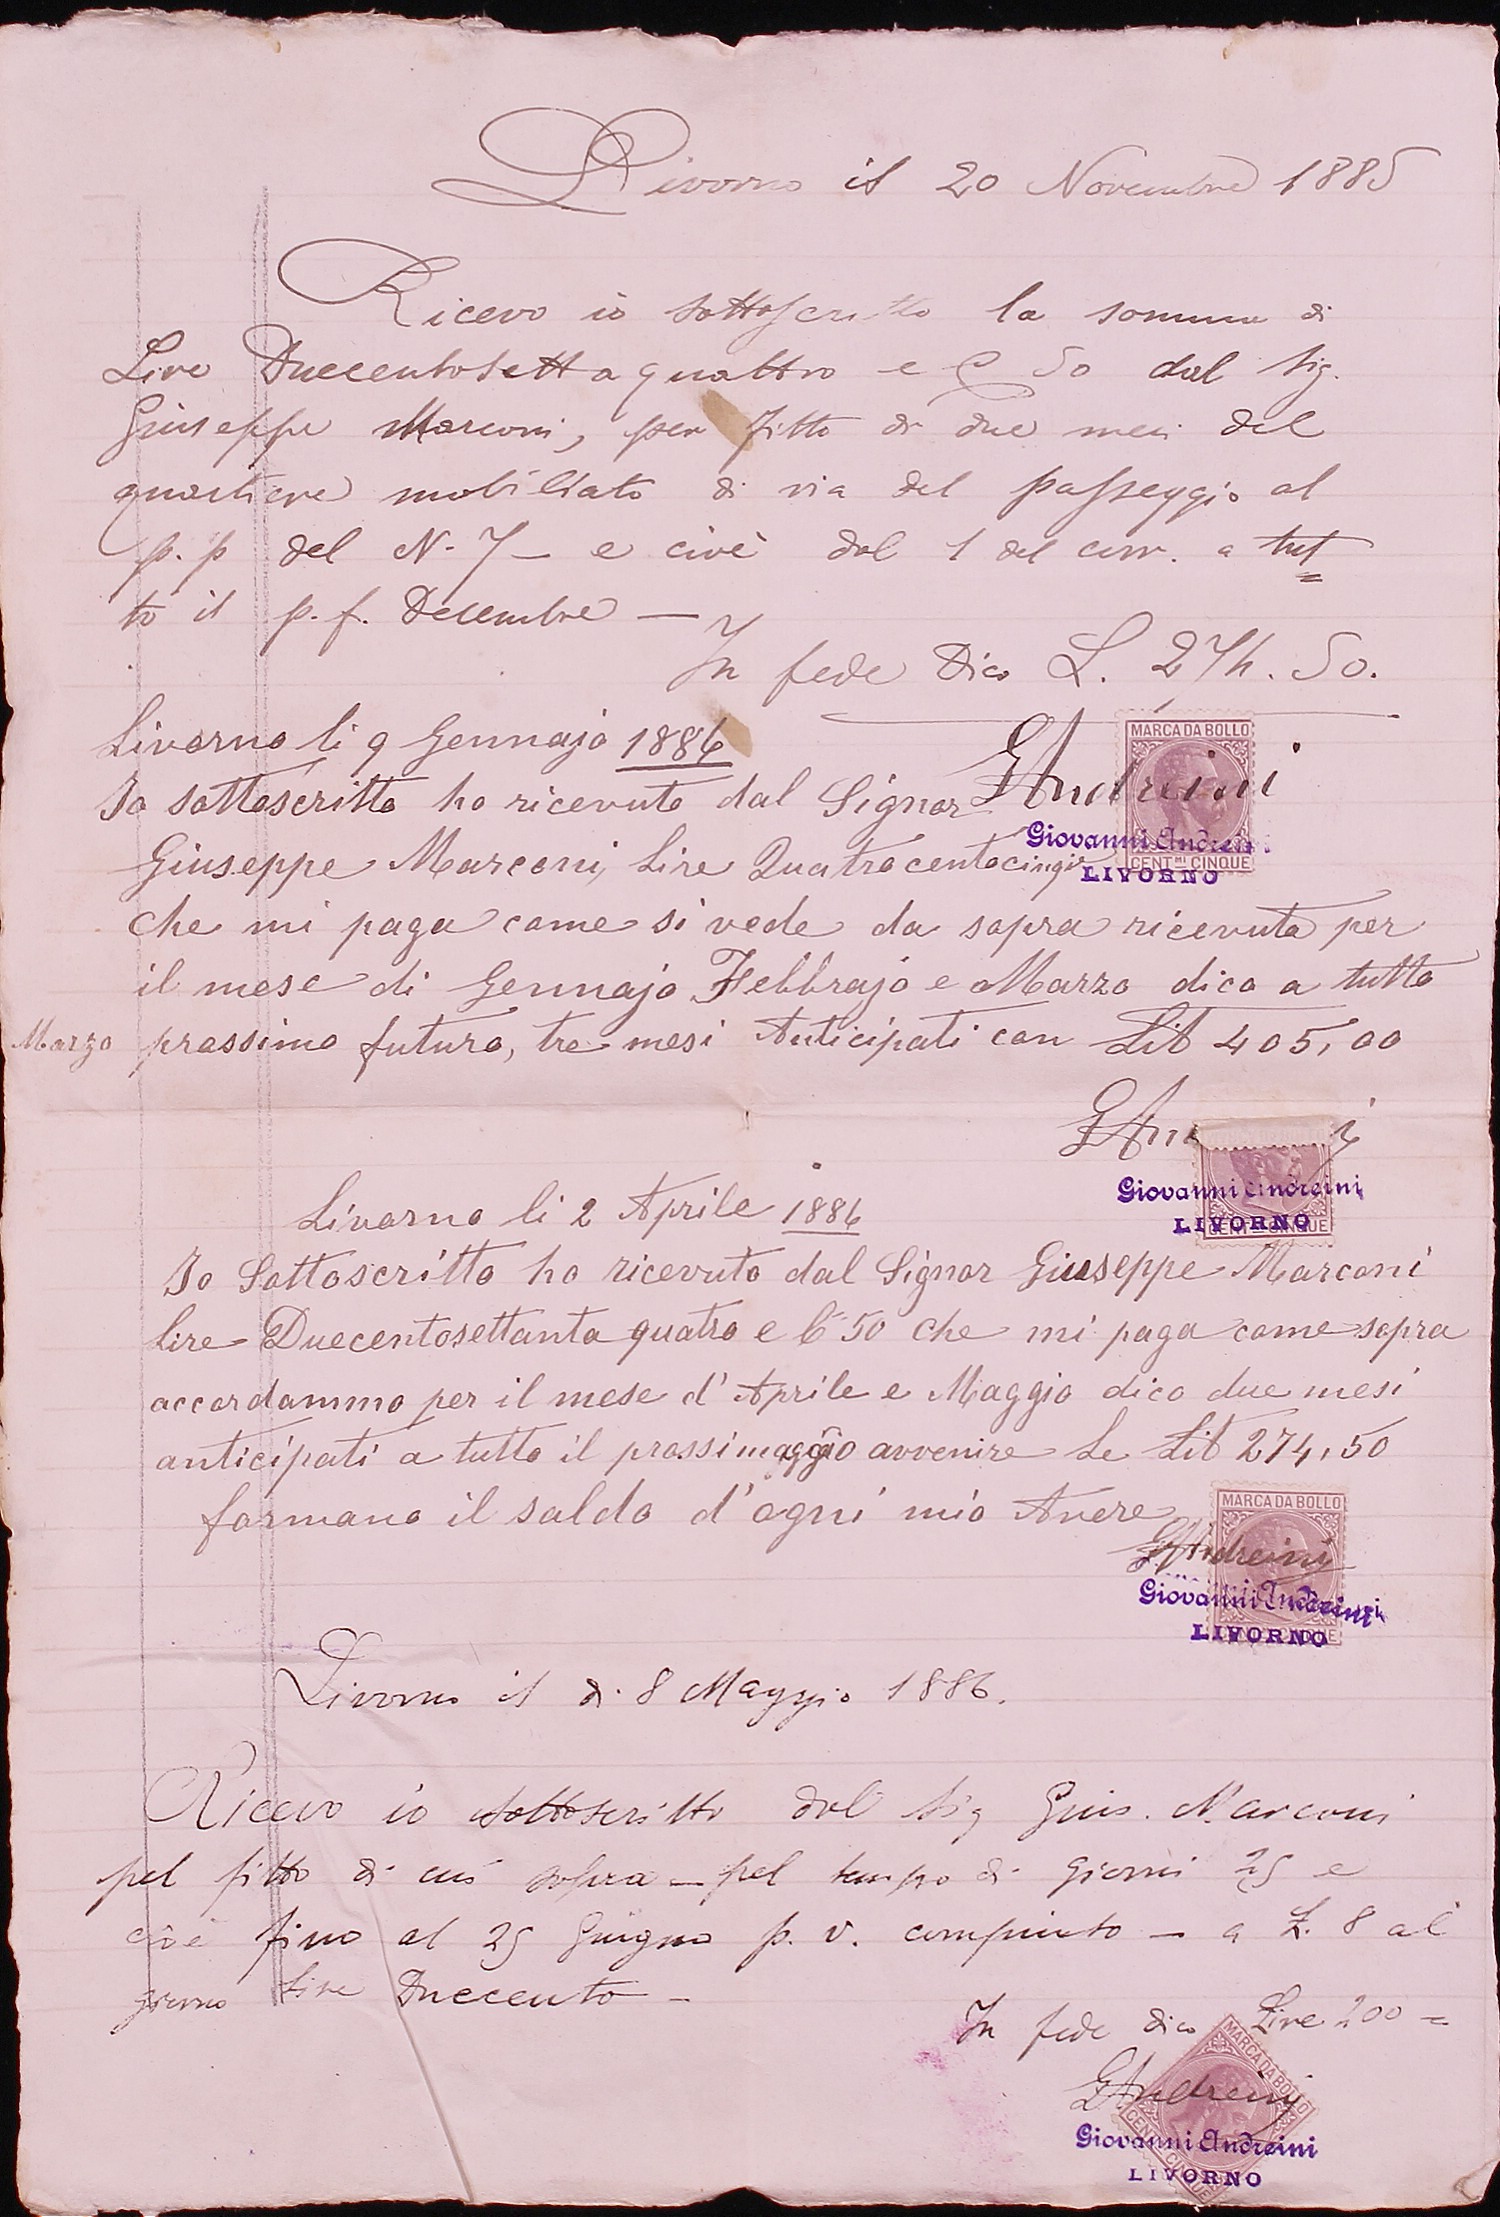 Livorno il 20 Novembre 1885
Ricevo io sottoscritto la somma di
Lire Duecentosettaquattro e C 50 dal Sig.
Giuseppe Marconi, per fitto di due mesi del
quartiere mobiliato di via del passeggio al
p. p del N. 7 — e cioè dal 1 del corr. a tut=
to il p. f. Decembre —
In fede dico L. 274. 50.
GAndreini
MARCA DA BOLLO
CENT.MI CINQUE
Giovanni Andreini
LIVORNO
Livorno li 9 Gennajo 1886
Io sottoscritto ho ricevuto dal Signor
Giuseppe Marconi, Lire Quatrocentocinque
che mi paga come si vede da sopra ricevuta per
il mese di Gennajo Febbrajo e Marzo dico a tutto
Marzo prossimo futuro, tre mesi Anticipati con Lit 405,00
Giovanni Andreini
LIVORNO
CENT.MI CINQUE
Livorno li 2 Aprile 1886
Io Sottoscritto ho ricevuto dal Signor Giuseppe Marconi
Lire Duecentosettanta quatro e C 50 che mi paga come sopra
accordammo per il mese d'Aprile e Maggio dico due mesi
anticipati a tutto il prossimaggio avvenire Le Lit 274,50
formano il saldo d'ogni mio Avere
MARCA DA BOLLO
GAndreini
Giovanni Andreini
LIVORNO
Livorno il dì 8 Maggio 1886.
Ricevo io sottoscritto dal Sig Gius. Marconi
pel fitto di cui sopra — pel tempo di giorni 25 e
cioè fino al 25 Giugno p. v. compiuto — a L. 8 al
giorno Lire Duecento —
In fede dico Lire 200 =
GAndreini
MARCA DA BOLLO
CENT.MI CINQUE
Giovanni Andreini
LIVORNO